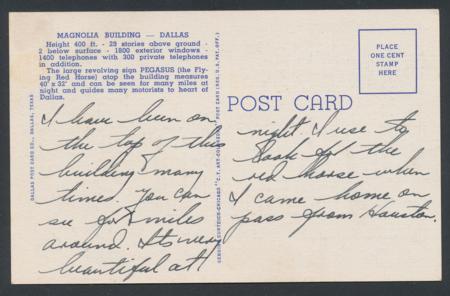 MAGNOLIA BUILDING — DALLAS
Height 400 ft. - 29 stories above ground -
2 below surface - 1800 exterior windows -
1400 telephones with 300 private telephones
in addition.
The large revolving sign PEGASUS (the Fly-
ing Red Horse) atop the building measures
40'x 32' and can be seen for many miles at
night and guides many motorists to heart of
Dallas.
I have been on
the top of this
building many
times. You can
see for miles
around. Its very
beautiful at
DALLAS POST CARD CO., DALLAS, TEXAS
GENUINE CURTEICH-CHICAGO "C.T. ART-COLORTONE" POST CARD (REG. U.S. PAT. OFF.)
POST CARD
PLACE
ONE CENT
STAMP
HERE
night I use to
look for the
red horse when
I came home on
pass from Houston.